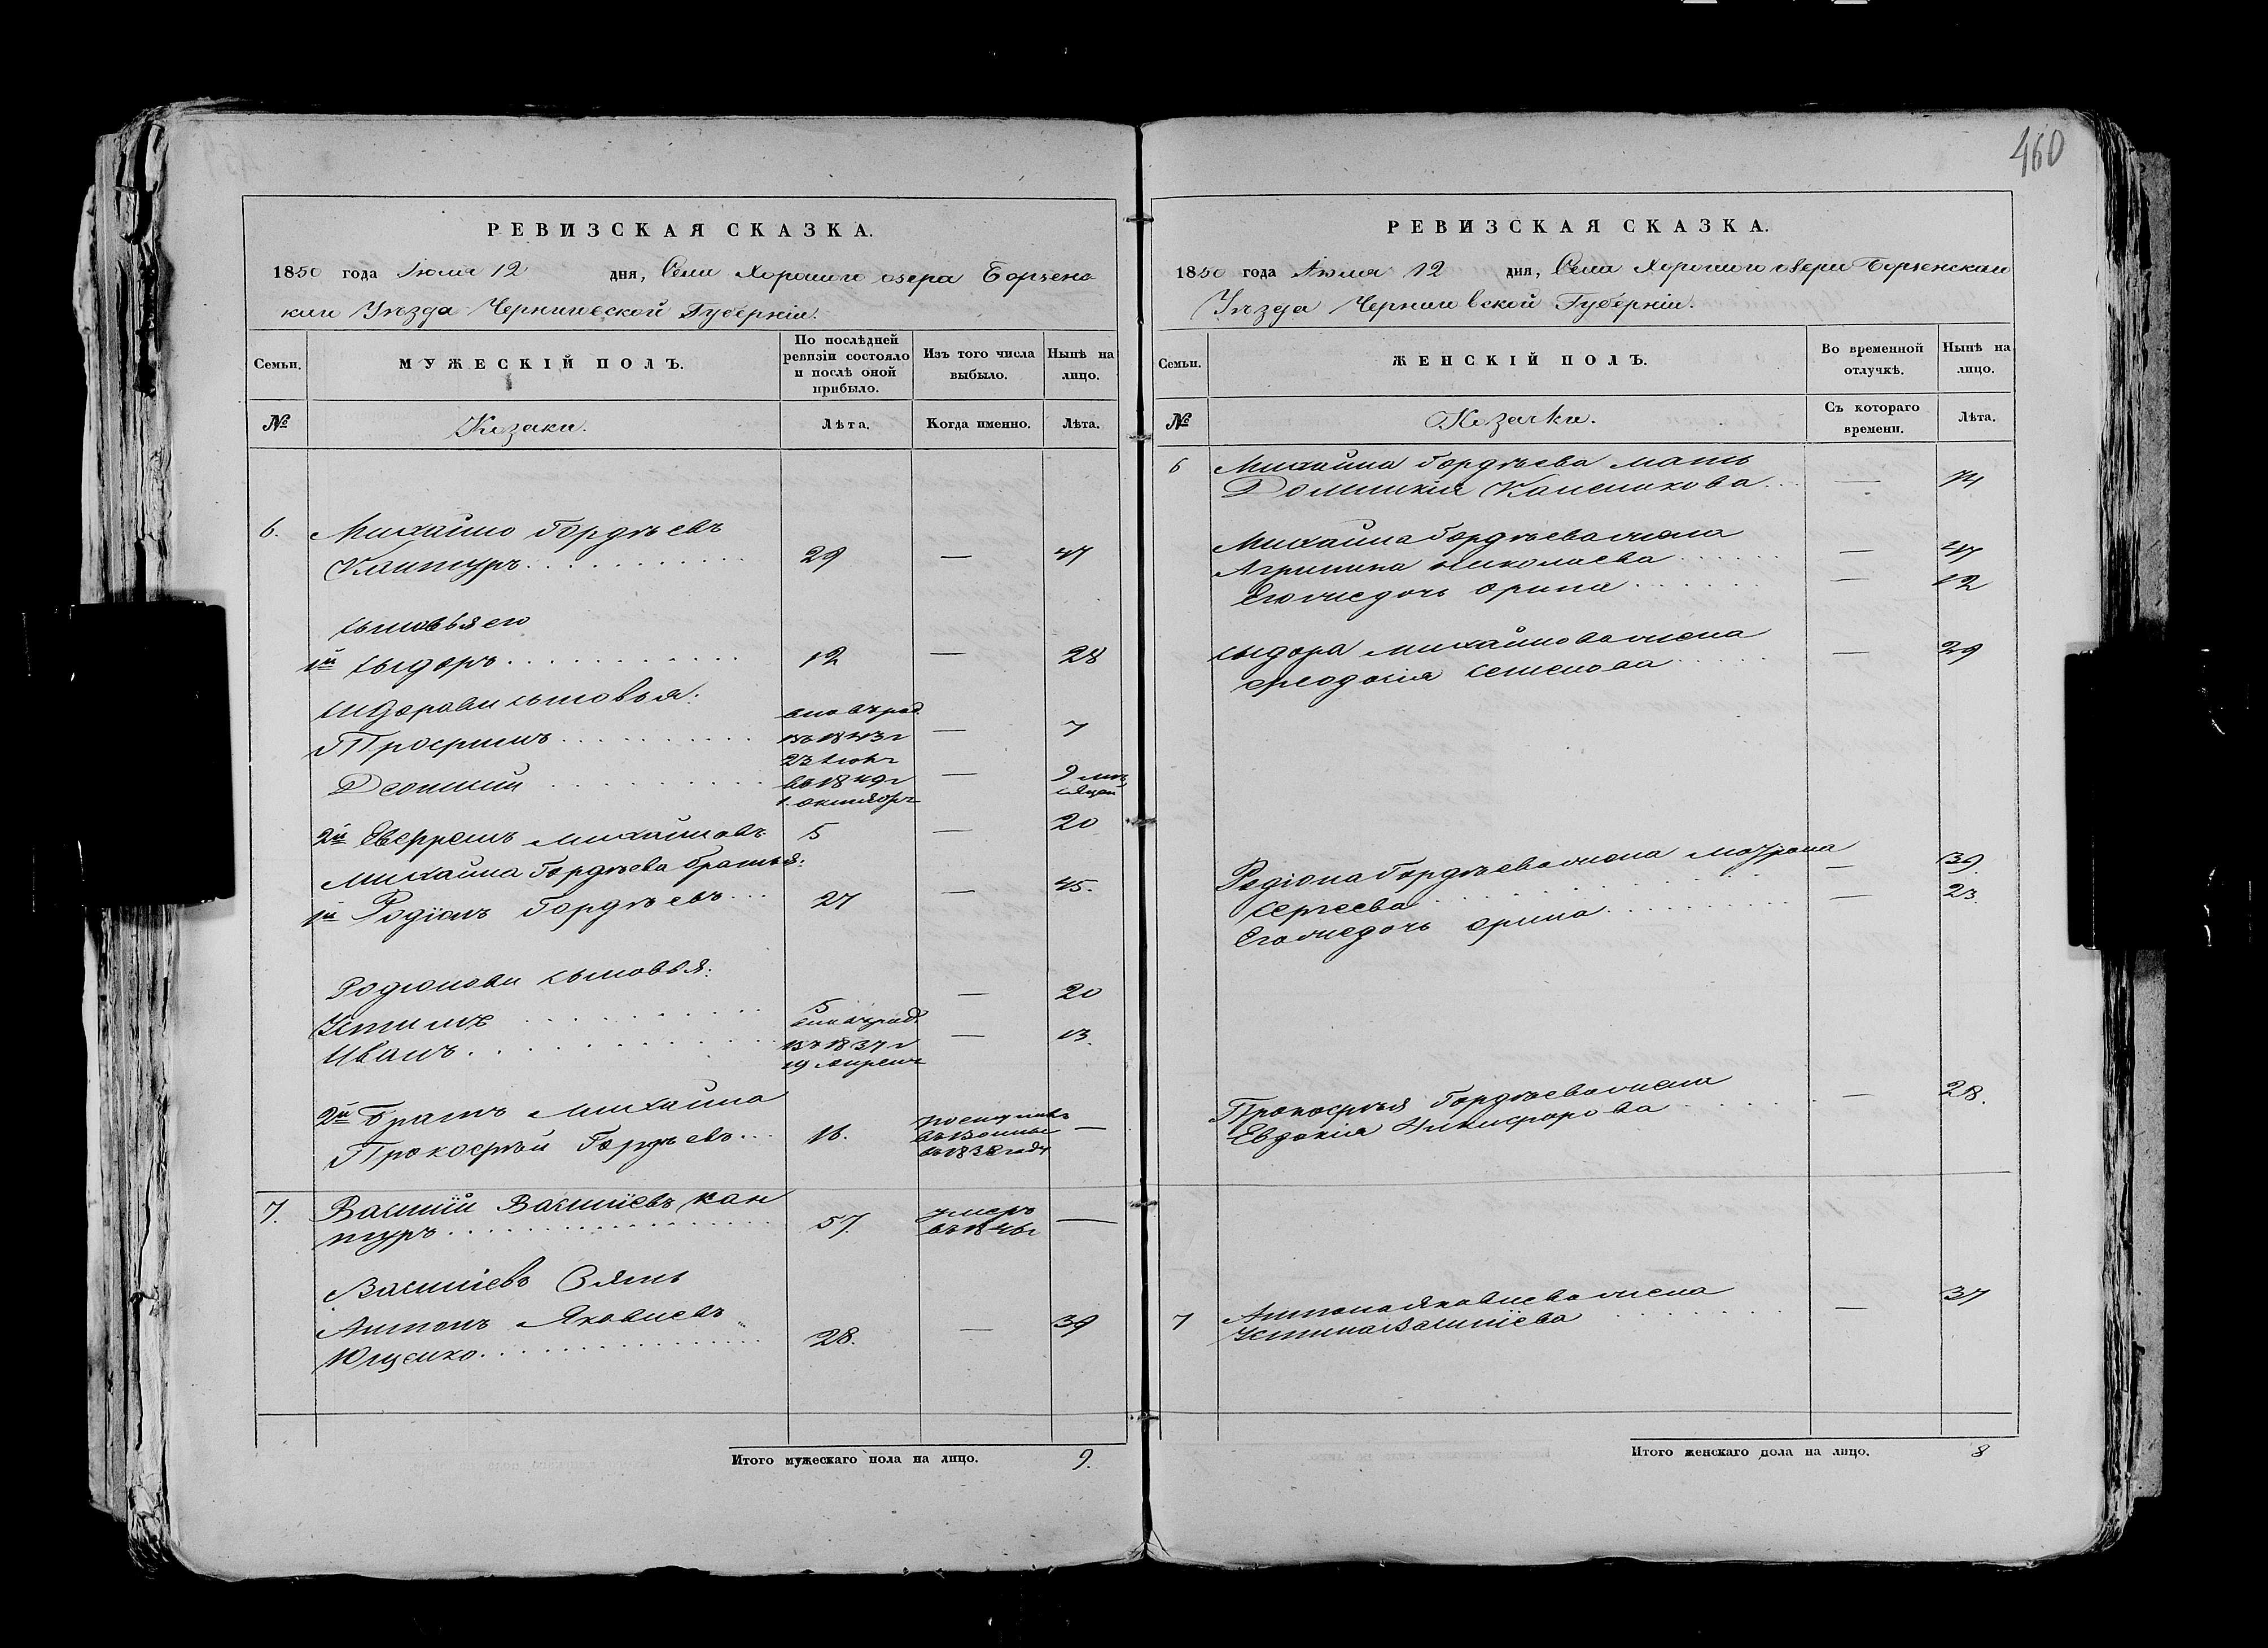 460
РЕВИЗСКАЯ СКАЗКА.
1850 года Июля 12 дня, Села Хорошого озера Борзенс
кого Уѣзда Черниговской Губерніи.
Семьи.
МУЖЕСКІЙ ПОЛЪ.
По послѣдней ревизіи состояло и послѣ оной прибыло.
Изъ того числа выбыло.
Нынѣ на лицо.
№
Козаки.
Лѣта.
Когда именно.
Лѣта.
6. Михайло Гордѣевъ
Кантуръ 29 — 47
сыновья его
1й Сыдоръ 12 — 28
Сидоровы сыновья:
Трофимъ вновь род. въ 1843 г 23 — 7
Леонтий въ 1849 г 1. октября — 9 мѣсяцей
2й Евфремъ Михайловъ 5 — 20
Михайла Гордѣева братья:
1й Родіонъ Гордѣевъ 27 — 45.
Родіоновы сыновья:
Устимъ 5 — 20
Иванъ вновь род. въ 1837 г 19 Апреля — 13.
2й братъ Михайла
Прокофѣй Гордѣевъ 16. въ 1838 году —
7. Василій Василіевъ Кан
туръ 57. умеръ въ 1846 г —
Василіевъ Зять
Антонъ Яковлевъ
Ющенко 28. — 39
Итого мужескаго пола на лицо. 9.
РЕВИЗСКАЯ СКАЗКА.
1850 года Июля 12 дня, Села Хорошого озера Борзенскаго
Уѣзда Черниговской Губерніи.
Семьи.
ЖЕНСКІЙ ПОЛЪ.
Во временной отлучкѣ.
Нынѣ на лицо.
№
Козачки.
Съ котораго времени.
Лѣта.
6 Михайла Гордѣева мать
Домникія — 74
Михайла Гордѣева жена
Агрипина Николаева — 47
Его же дочь Орина — 12
Сыдора Михайлова жена
Феодосія Семенова — 29
Родіона Гордѣева жена Мотрона
Сергеева — 39.
Его же дочь Орина — 23.
Прокофѣя Гордѣева жена
Евдокія Никифорова — 28.
7 Антона Яковлева жена
Устина Василіева — 37
Итого женскаго пола на лицо. 8